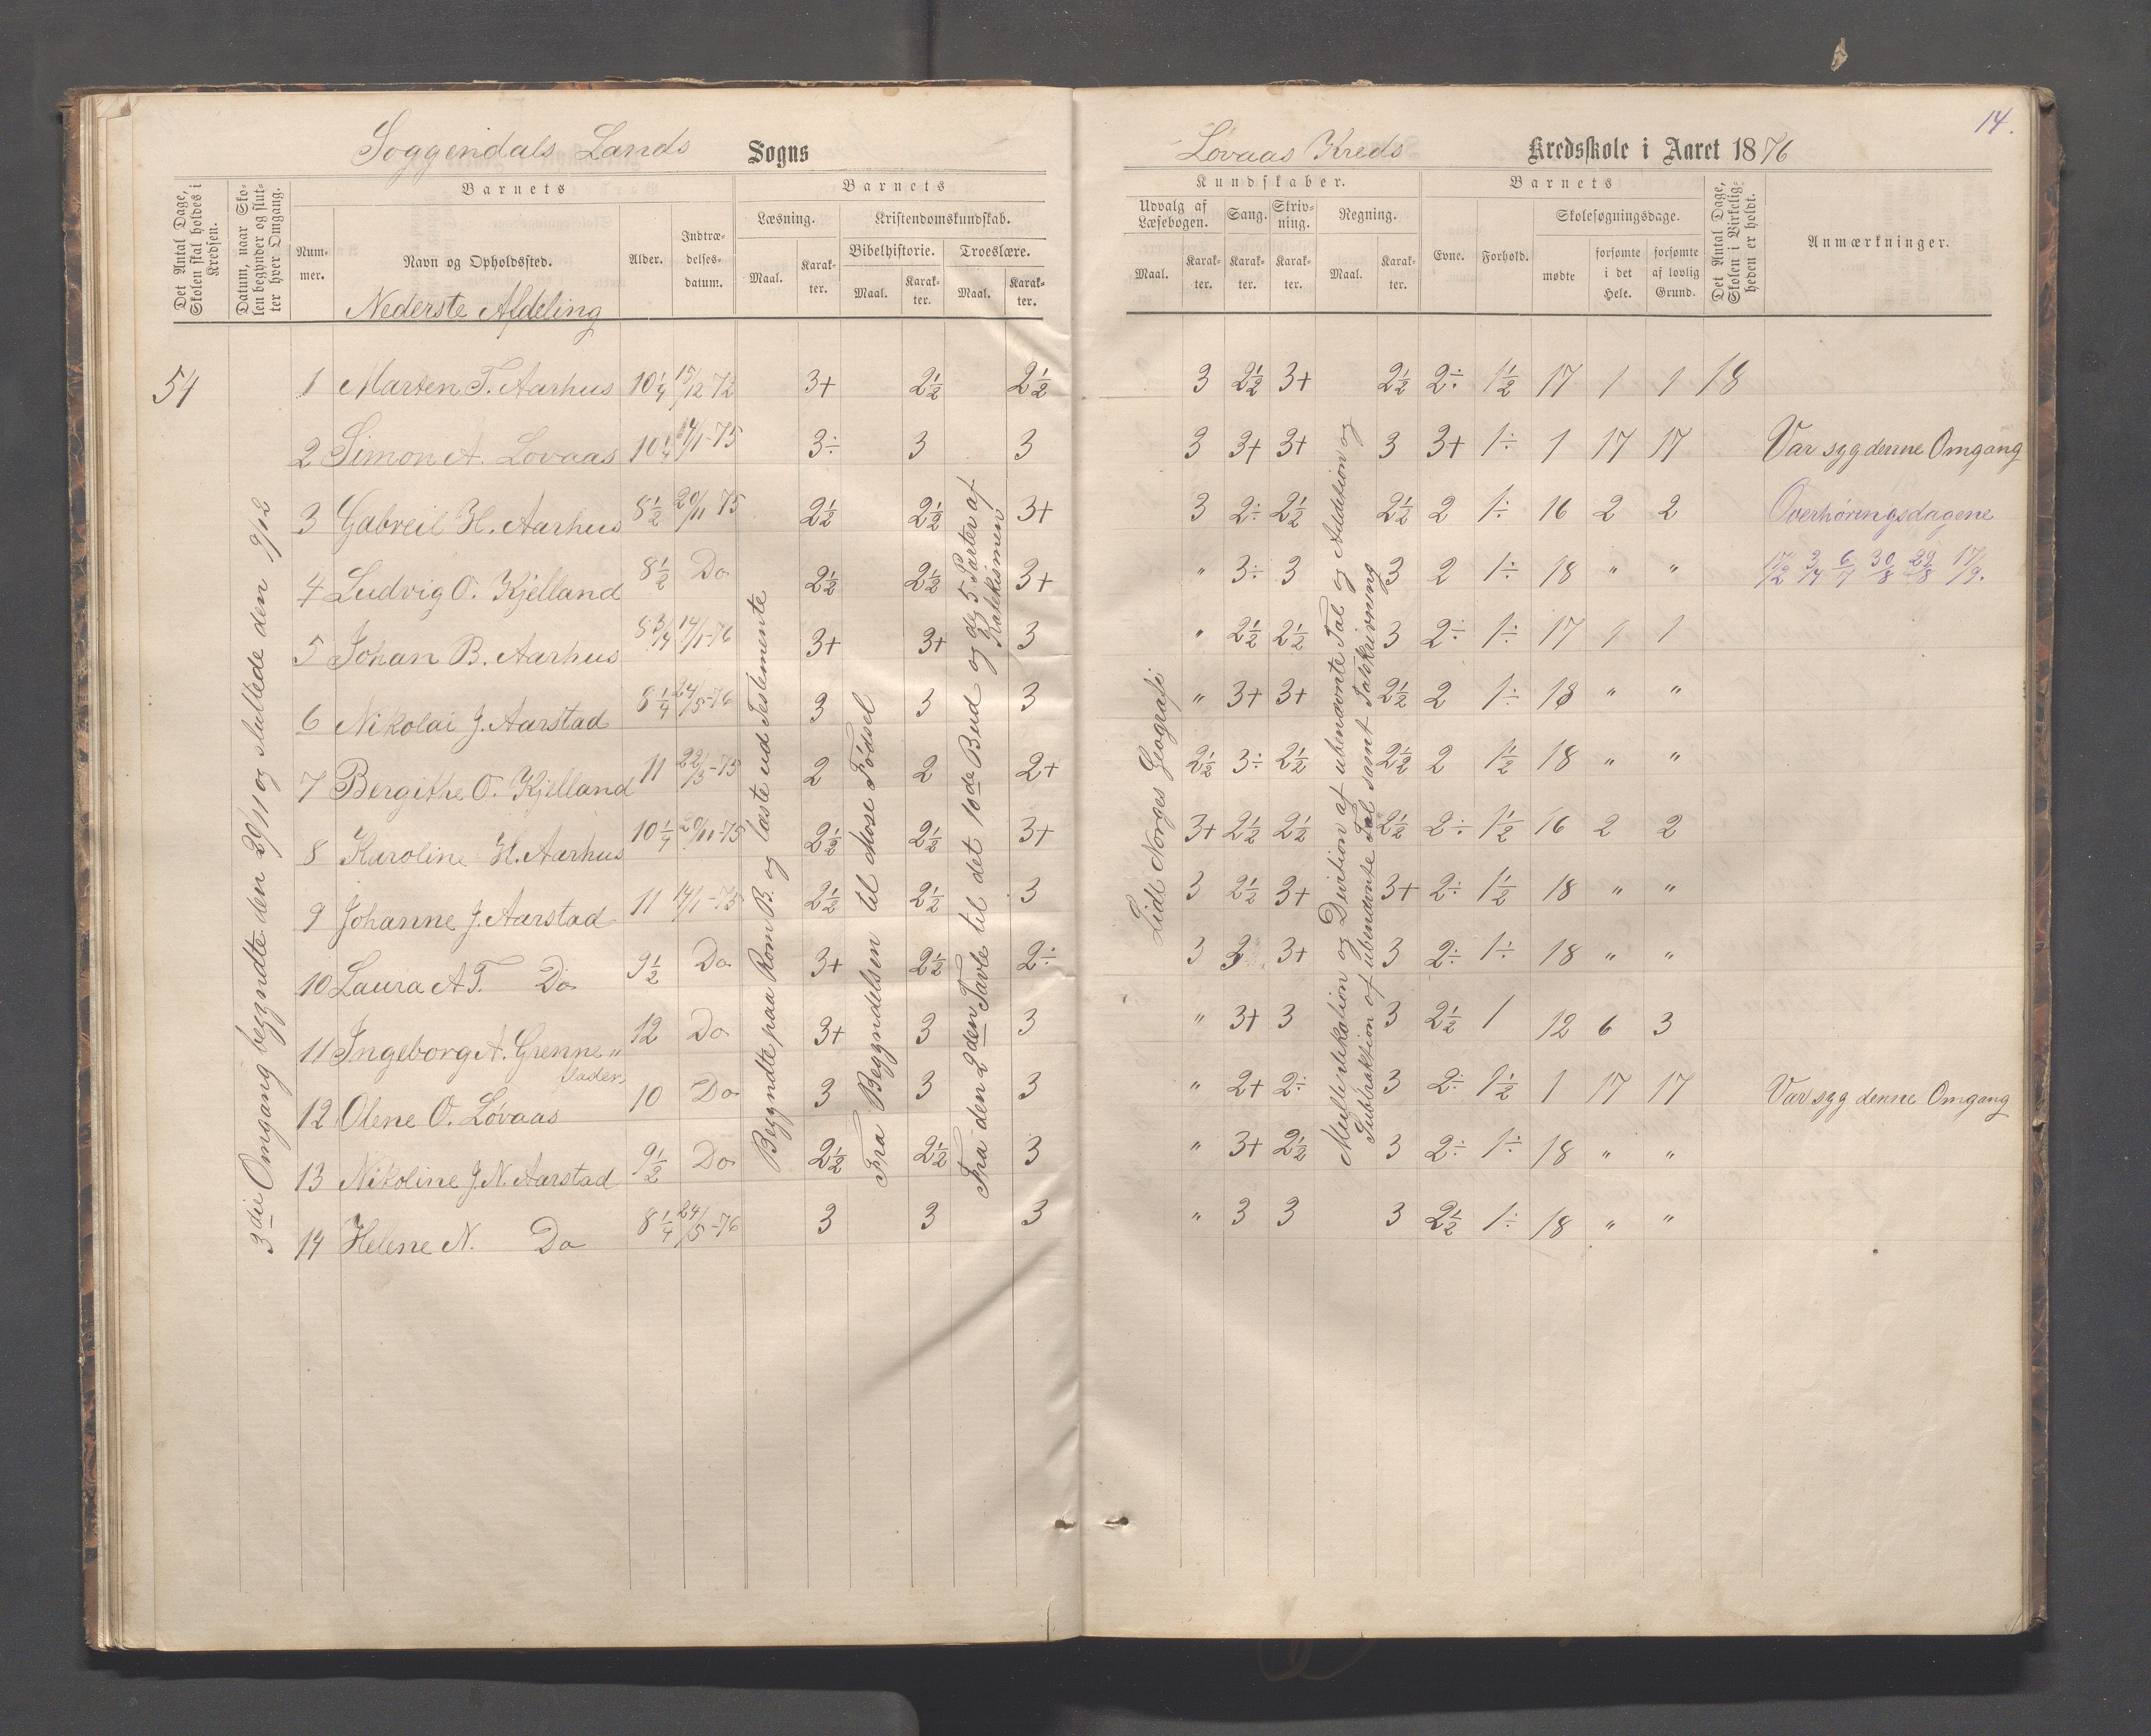 14.
Soggendals Lands Sogns
Lovaas Kreds Kredsskole i Aaret 1876
Det Antal Dage, Skolen skal holdes i Kredsen.
Datum, naar Skolen begynder og slutter hver Omgang.
Barnets
Nummer.
Navn og Opholdssted.
Alder.
Indtrædelsesdatum.
Barnets
Læsning.
Kristendomskundskab.
Bibelhistorie.
Troeslære.
Maal. Karakter. Maal. Karakter. Maal. Karakter.
Kundskaber.
Udvalg af Læsebogen.
Sang.
Skrivning.
Regning.
Maal. Karakter. Karakter. Karakter. Maal. Karakter.
Barnets
Evne. Forhold.
Skolesøgningsdage.
mødte
forsømte i det Hele.
forsømte af lovlig Grund.
Det Antal Dage, Skolen i Virkeligheden er holdt.
Anmærkninger.
Nederste Afdeling
54
3die Omgang begyndte den 20/11 og sluttede den 9/12
Begyndte paa Rom B. og læste ud Testemente
Fra Begyndelsen til Mose Fødsel
Fra den 2den Tavle til det 10de Bud og de 5 Parter af Katekismen
Lidt Norges Geografi
Multiplikation og Divition af ubenævnte Tal og Addition og
Subtraktion af ubenævnte Tal samt Talskrivning
1 Marten T. Aarhus 10 1/4 15/12 72 3+ 2½ 2½ 3 2½ 3+ 2½ 2÷ 1½ 17 1 1 18
2 Simon A. Lovaas 10 1/4 14/1-75 3÷ 3 3 3 3+ 3+ 3 3+ 1÷ 1 17 17 Var syg denne Omgang
3 Gabreil H. Aarhus 8½ 20/11 75 2½ 2½ 3+ 3 2÷ 2½ 2½ 2 1÷ 16 2 2 Overhøringsdagene
4 Ludvig O. Kjelland 8½ Do 2½ 2½ 3+ " 3÷ 3 3 2 1÷ 18 " " 17/2 3/4 6/7 30/8 29/8 17/9.
5 Johan B. Aarhus 8 3/4 14/1-76 3+ 3+ 3 " 2½ 2½ 3 2÷ 1÷ 17 1 1
6 Nikolai J. Aarstad 8 1/4 24/5-76 3 3 3 " 3+ 3+ 2½ 2 1÷ 18 " "
7 Bergithe O. Kjelland 11 22/5-75 2 2 2+ 2½ 3÷ 2½ 2½ 2 1½ 18 " "
8 Karoline H. Aarhus 10 1/4 20/11-75 2½ 2½ 3+ 3+ 2½ 2½ 2½ 2÷ 1½ 16 2 2
9 Johanne J. Aarstad 11 14/1-75 2½ 2½ 3 3 2½ 3+ 3+ 2÷ 1½ 18 " "
10 Laura A T. Do 9½ Do 3+ 2½ 2÷ 3 3 3+ 3 2÷ 1÷ 18 " "
11 Ingeborg A. Grenneflader 12 Do 3+ 3 3 " 3+ 3 3 2½ 1 12 6 3
12 Olene O. Løvaas 10 Do 3 3 3 " 2+ 2÷ 3 2÷ 1½ 1 17 17 Var syg denne Omgang
13 Nikoline J. N. Aarstad 9½ Do 2½ 2½ 3 " 3+ 2½ 3 2÷ 1÷ 18 " "
14 Helene N. Do 8 1/4 24/5-76 3 3 3 " 3 3 3 2½ 1÷ 18 " "